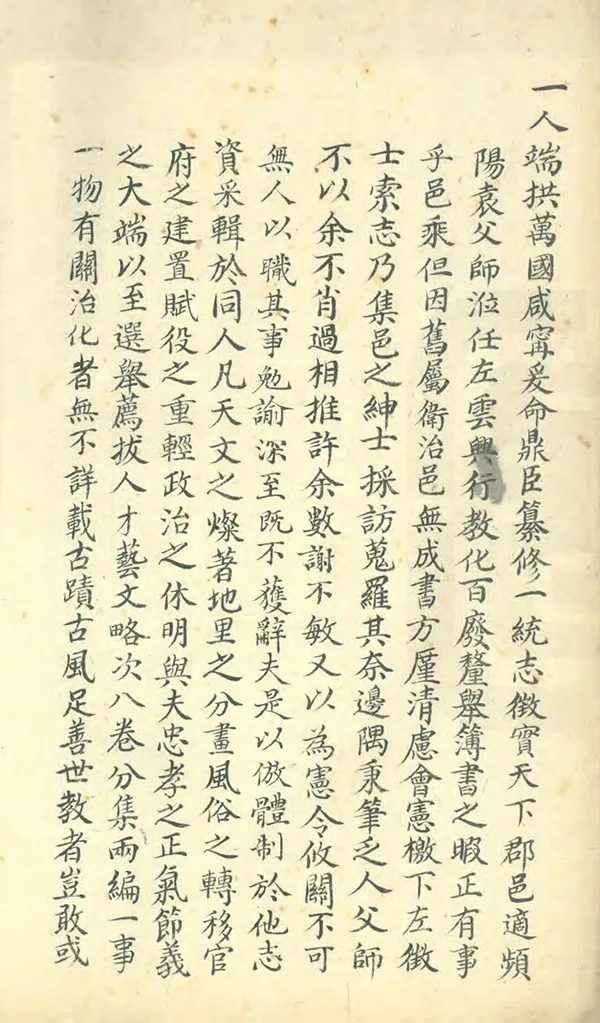 一人端拱萬國咸寗爰命鼎臣纂修一統志徵實天下郡邑適頻
陽袁父師涖任左雲興行教化百廢釐舉簿書之暇正有事
乎邑乘但因舊屬衛治邑無成書方厪清慮會憲檄下左徵
士索志乃集邑之紳士採訪蒐羅其奈邊隅秉筆乏人父師
不以余不肖過相推許余數謝不敏又以為憲令攸關不可
無人以職其事勉諭深至既不獲辭夫是以倣體制於他志
資采輯於同人凡天文之燦著地里之分畫風俗之轉移官
府之建置賦役之重輕政治之休明與夫忠孝之正氣節義
之大端以至選舉薦拔人才藝文略次八卷分集兩編一事
一物有關治化者無不詳載古蹟古風足善世教者豈敢或